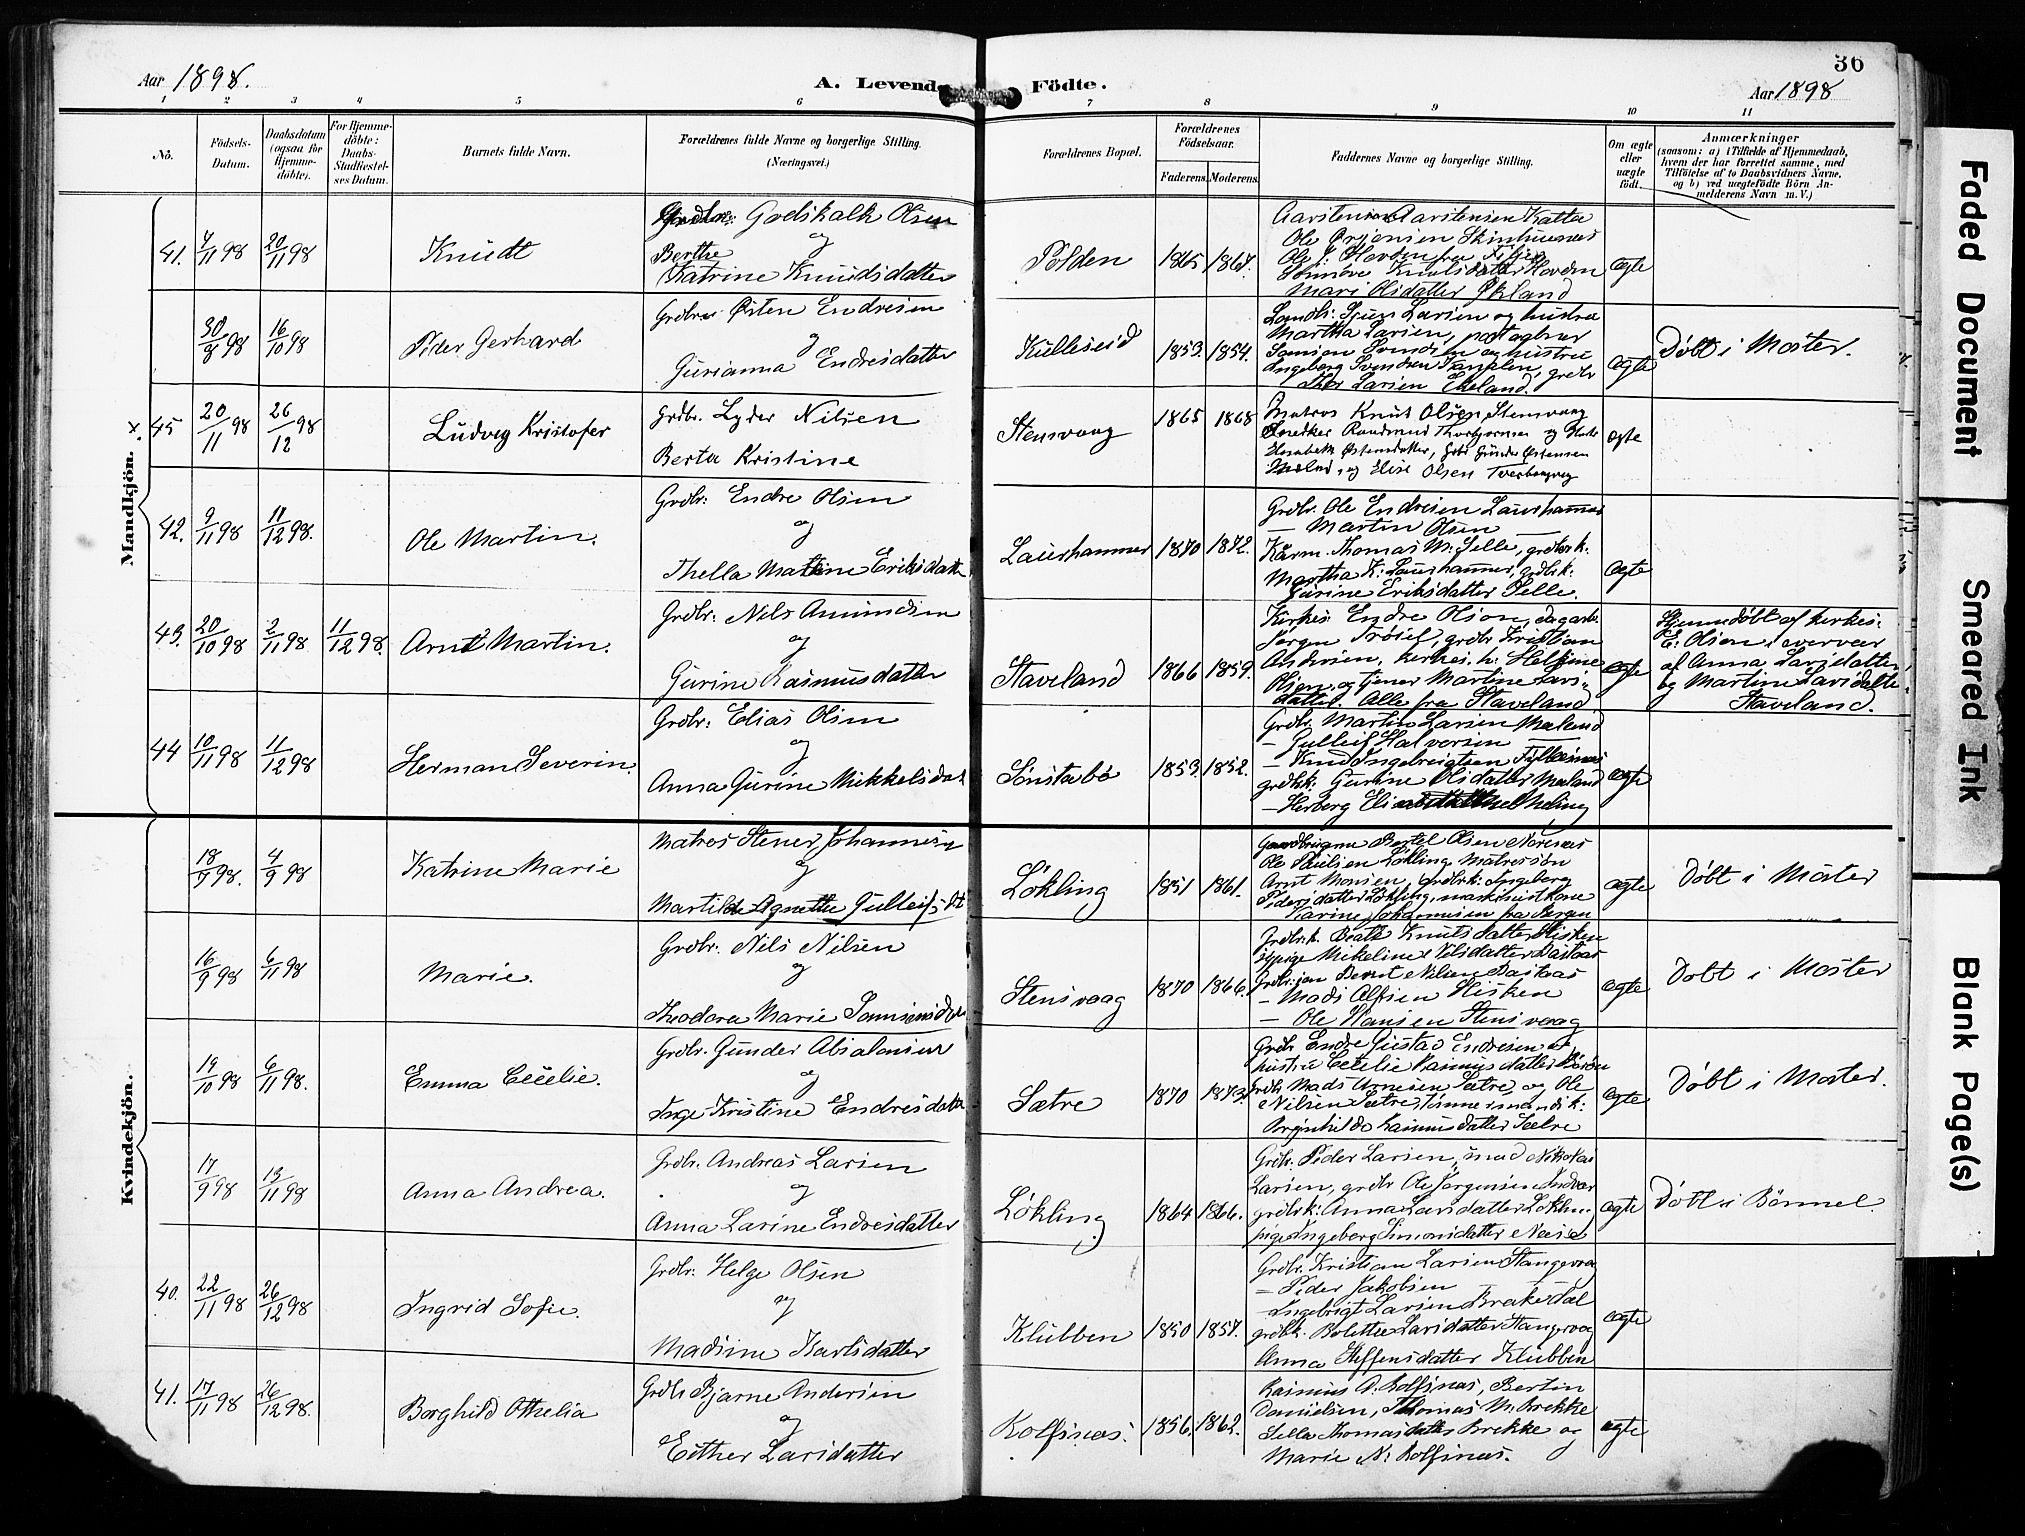 36
Aar 1898.
A. Levende Födte.
Aar 1898
1 2 3 4 5 6 7 8 9 10 11
No.
Födsels-Datum.
Daabsdatum (ogsaa for Hjemme-döbte).
For Hjemme-döbte: Daabs-Stadfæstel-ses Datum.
Barnets fulde Navn.
Forældrenes fulde Navne og borgerlige Stilling. (Næringsvei.)
Forældrenes Bopæl.
Forældrenes Födselsaar.
Faderens. Moderens.
Faddernes Navne og borgerlige Stilling.
Om ægte eller uægte födt.
Anmærkninger
(saasom: a) i Tilfælde af Hjemmedaab, hvem der har forrettet samme, med Tilföielse af to Daabsvidners Navne, og b) ved uægtefödte Börn An-melderens Navn m. V.)
Mandkjön.
41. 7/11 98 20/11 98
Knudt
Godskalk Olsen
og
Berthe
Katrine Knudsdatter
Polden 1865 1867.
Aarstensen Katla
Ole Ørjensen
Mari Olsdatter Økland
ægte
30/8 98 16/10 98
Peder Gerhard
Grdbr. Østen Endresen
og
Gurianna Endresdatter
Kulleseid 1853. 1854.
Landh: Sjur Larsen og hustru
Martha Larsen,
Samson Svendsen og hustru
Ingeborg Svendsen Kanalen, grdbr
Thor Larsen Ekeland.
ægte
Døbt i Moster.
x 45 20/11 98 26/12 98
Ludvig Kristofer
Grdbr. Lyder Nilsen
Berta Kristine
Stensvaag 1865 1868
Matros Knut Olsen Stensvaag
Snedker Raudmund Thorbjørnsen og
Elisabeth Østensdatter, Grdb Gunder Østensen
og Elise Olsen
ægte
42. 9/11 98 11/12 98.
Ole Martin.
Grdbr: Endre Olsen
og
Thella Matine Eriksdatter
Laurhammer 1870 1872.
Grdbr: Ole Endresen Laurhammer
— Martin Olsen —
Thomas M. Selle, grdbrk:
Martha K. Laurhammer, grdbrk:
Gurine Eriksdatter Selle.
ægte
43. 20/10 98 2/11 98 11/12 98.
Arnt Martin.
Grdbr: Nils Amundsen
og
Gurine Rasmusdatter
Staveland 1866 1859.
Kirkes: Endre Olsen, dagarb.
Jørgen Trøeid, grdbr Kristian
Andersen, kirkes. h: Helfine
Olsen, og tjener Martine Lars-
datter. Alle fra Staveland
ægte
Hjemmedøbt af kirkes:
E: Olsen i nærvær
af Anna Larsdatter,
og Martine Larsdatter
Staveland.
44 10/11 98 11/12 98
Herman Severin.
Grdbr: Elias Olsen
og
Anna Gurine Mikkelsdat
Sønstabø 1853 1852.
Grdbr. Martin Larsen Mæland
— Gulleif Halvorsen —
— Knud Ingebrigtsen
grdbk: Gurine Olsdatter Mæland
— Herborg Meling
ægte
Kvindekjön.
18/9 98. 4/9 98
Katrine Marie
Matros Stener Johannesen
og
Martilde Agnethe Gulleifs dt
Løkling 1851 1861.
Gaardbrugerne Bertel Olsen Norenæs
Ole Paulsen Løkling, Matrossøn
Arnt Monsen, grdbrk: Ingeborg
Pedersdatter Løkling, maskinistkone
Karine Johannesen fra Bergen
ægte
Døbt i Moster
16/9 98 6/11 98
Marie.
Grdbr: Nils Nilsen
og
Theodora Marie
Stensvaag 1870 1866.
Grdbr.k. Beate Knutsdatter Hisken
pige Mikeline Nilsdatter Dastaas
Grdbr.søn Bernt Nilsen Dastaas
— Mads Alfsen Hisken
— Ole Hansen Stensvaag
ægte
Døbt i Moster
19/10 98 6/11 98.
Emma Cecelie.
Grdbr. Gunder Absalonsen
og
Inge Kristine Endresdatter
Sætre 1870 1873.
Grdbr. Endre Gustav Endresen og
hustru Cecelie Rasmusdatter
grdbr. Mads Arnesen Sætre, og Ole
Nilsen Sætre, tømmermands k:
Brynhilda Rasmusdatter Sætre
ægte
Døbt i Moster.
17/9 98 13/11 98
Anna Andrea.
Grdbr: Andreas Larsen
og
Anna Larine Endresdatter
Løkling 1864 1866.
Grdbr. Peder Larsen, smed Nikolai
Larsen, grdbr Ole Jørgensen
grdbrk: Anna Larsdatter Løkling
pige Ingeborg Simonsdatter
ægte
Døbt i Bømmel.
40. 22/11 98 26/12 98
Ingrid Sofie.
Grdbr: Helge Olsen
og
Madsine Karlsdatter
Klubben 1850 1857.
Grdbr. Kristian Larsen Stangevaag
— Peder Jakobsen —
— Ingebrigt Larsen Brakedal
grdbk. Bolette Larsdatter Stangevaag
Anna Steffensdatter Klubben
ægte
41. 17/11 98 26/12 98.
Borghild Othelia
Grdbr Bjarne Andersen
og
Esther Larsdatter
Rolfsnæs. 1856. 1862.
Rasmus A. Rolfsnæs, Bertin
Danielsen, Thomas M. Brekke
Sella Thomasdatter Brekke og
Marie N: Rolfsnæs.
ægte
Faded Document
Smeared Ink
Blank Page(s)